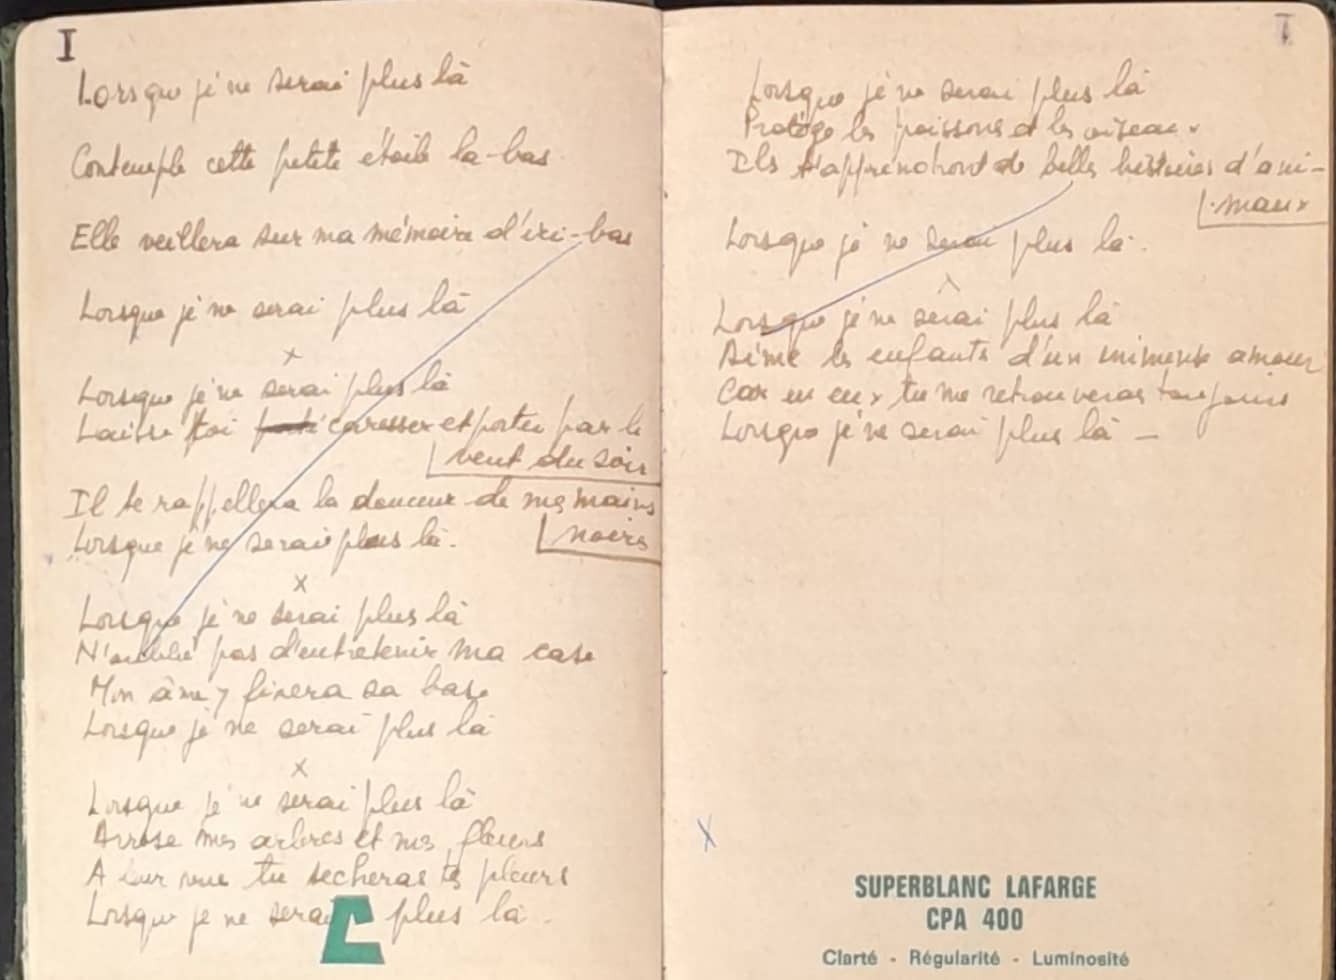 I
Lorsque je ne serai plus là
Contemple cette petite étoile là-bas
Elle veillera sur ma mémoire d'ici-bas
Lorsque je ne serai plus là
x
Lorsque je ne serai plus là
Laisse toi caresser et porter par le
vent du soir
Il te rappellera la douceur de mes mains
noires
Lorsque je ne serai plus là.
x
Lorsque je ne serai plus là
N'oublie pas d'entretenir ma case
Mon âme y fixera sa base
Lorsque je ne serai plus là
x
Lorsque je ne serai plus là
Arrose mes arbres et mes fleurs
A leur vue tu sècheras tes pleurs
Lorsque je ne serai plus là.
I
Lorsque je ne serai plus là
Protège les poissons et les oiseaux
Ils t'apprendront de belles histoires d'ani-
maux
Lorsque je ne serai plus là.
Lorsque je ne serai plus là
Aime les enfants d'un immense amour
Car en eux tu me retrouveras toujours
Lorsque je ne serai plus là —
x
SUPERBLANC LAFARGE
CPA 400
Clarté - Régularité - Luminosité